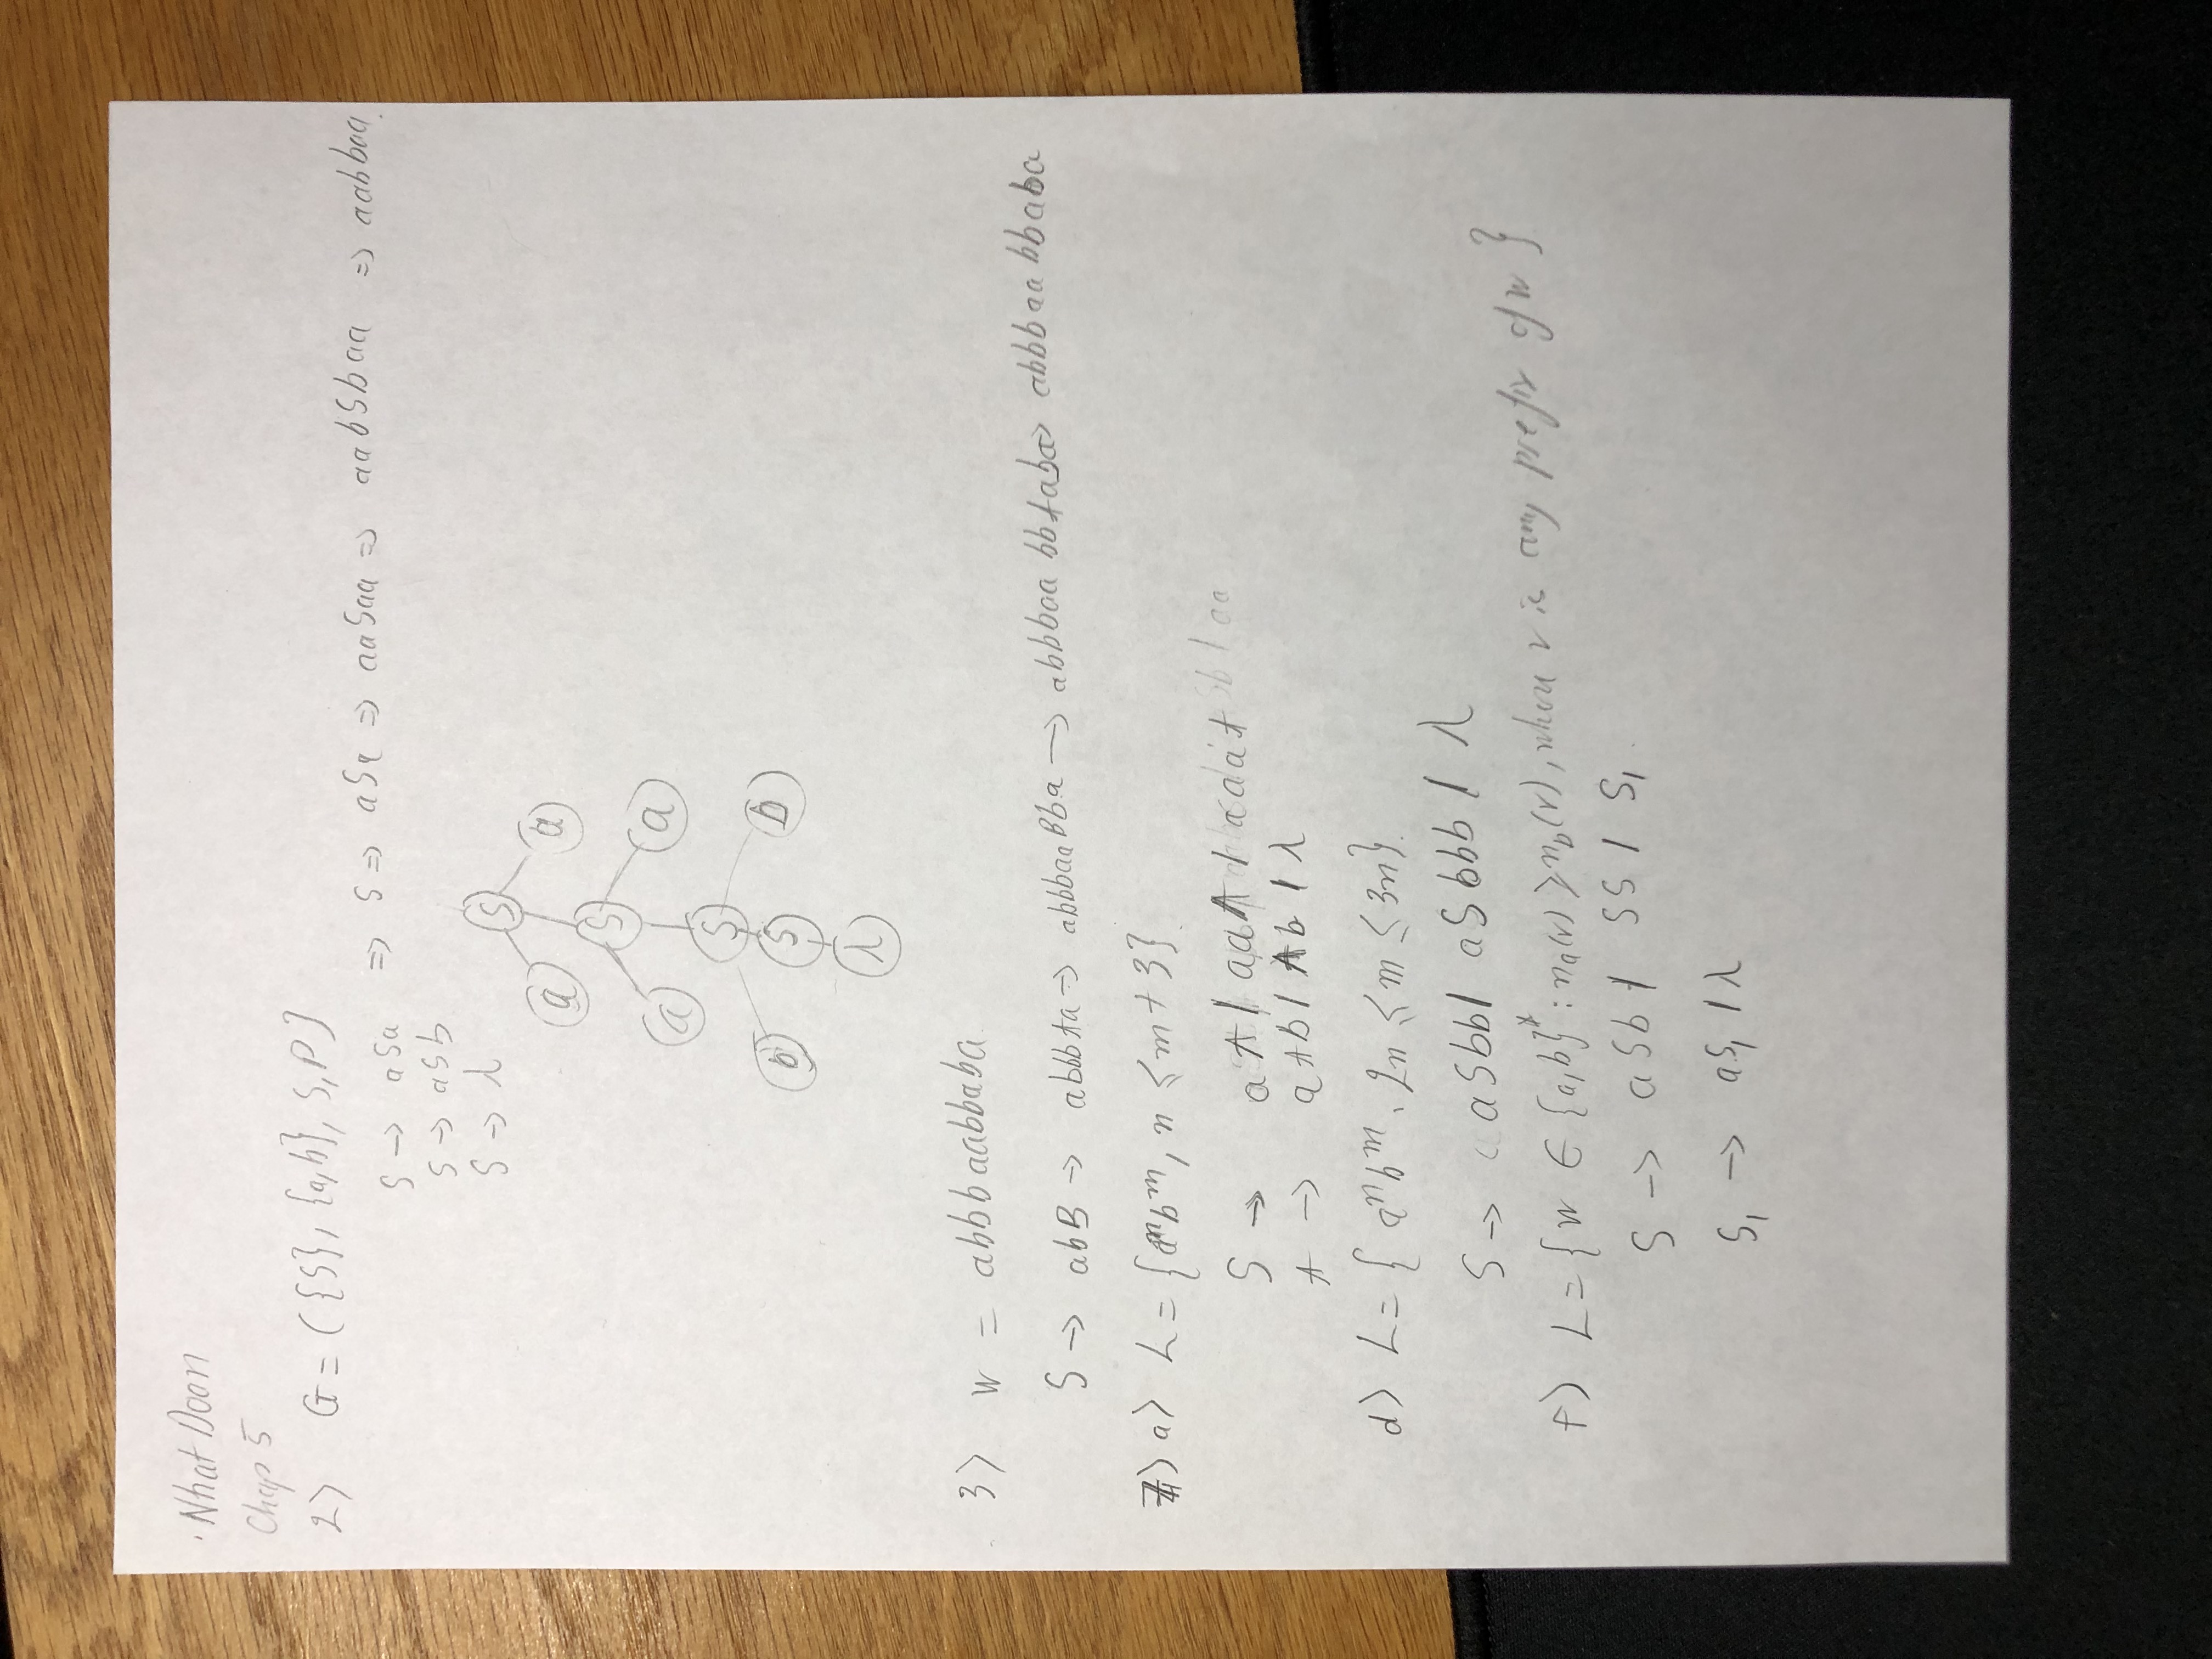 Nhat Doan
Chap 5
2) G = ({S}, {a,b}, S, P}
S → aSa ⇒ S ⇒ aSa ⇒ aaSaa ⇒ aabSbaa ⇒ aabbaa.
S → aSb
S → λ
S
a a
S
a a
S
b S b
λ
3) w = abbbaabbaba
S → abB → abbbAa → abbbaaBba → abbbaabbAaba → abbbaabbaba
7) a) L = {aⁿbᵐ, n ≤ m + 3}
S → aA | aaA | aaaA
A → aAb | Ab | λ
d) L = {aⁿbᵐ, 2n ≤ m ≤ 3n}
S → aSbb | aSbbb | λ
f) L = {w ∈ {a,b}* : nₐ(v) ≥ n_b(v), where v is any prefix of w}
S → aSb | SS | S₁
S₁ → aS₁ | λ